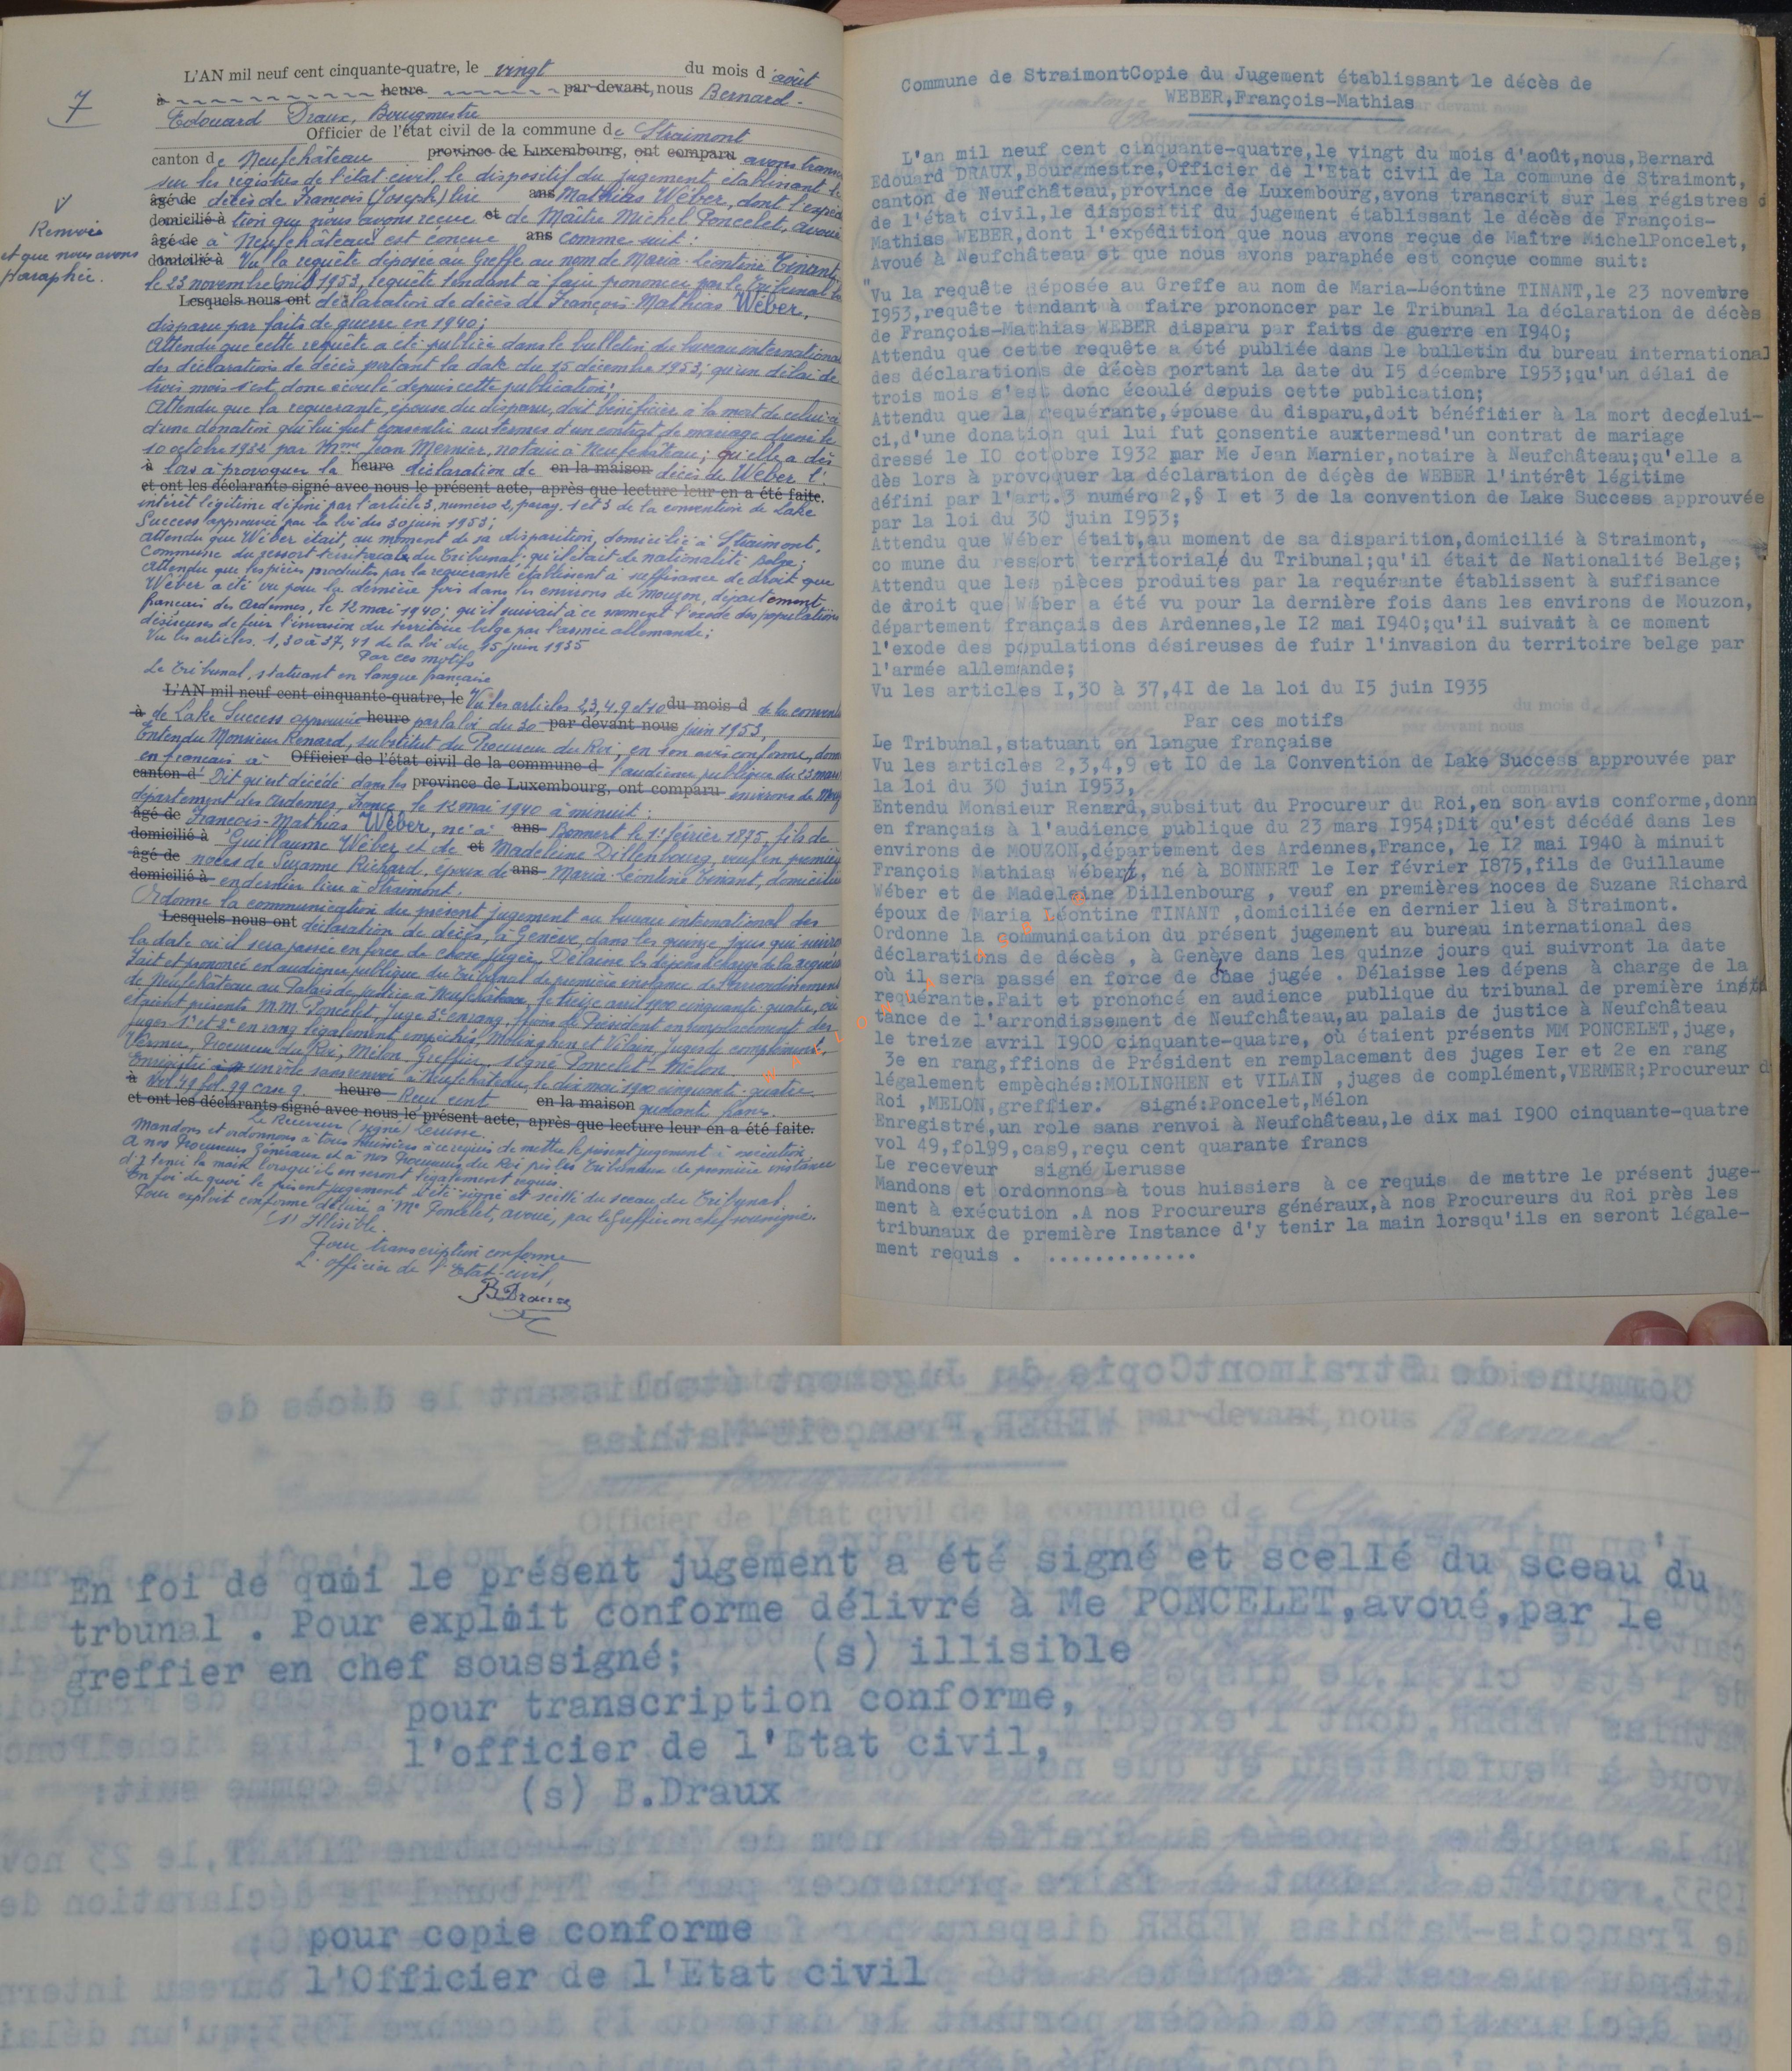 L'AN mil neuf cent cinquante-quatre, le vingt du mois d'août
7
à heure par-devant, nous Bernard-
Edouard Draux, Bourgmestre
Officier de l'état civil de la commune de Straimont
canton de Neufchâteau province de Luxembourg, ont comparu avons trans
sur les régistres de l'état civil, le dispositif du jugement établissant le
âgé de décès de François (Joseph) lire ans Mathias Wéber, dont l'expéd
domicilié à tion que nous avons reçue et de Maître Michel Poncelet, avoué
âgé de à Neufchâteau est conçue ans comme suit :
V
Renvoi
et que nous avons
paraphée.
domicilié à Vu la requête déposée au Greffe au nom de Maria-Léontine Tinant,
le 23 novembre 1953, requête tendant à faire prononcer par le Tribunal la
Lesquels nous ont déclaration de décès de François-Mathias Wéber,
disparu par faits de guerre en 1940;
Attendu que cette requête a été publiée dans le bulletin du bureau international
des déclarations de décès portant la date du 15 décembre 1953; qu'un délai de
trois mois s'est donc écoulé depuis cette publication;
Attendu que la requérante, épouse du disparu, doit bénéficier à la mort de celui-ci
d'une donation qui lui fut consentie aux termes d'un contrat de mariage dressé le
10 octobre 1932 par Me Jean Mernier, notaire à Neufchâteau; qu'elle a dès
à lors à provoquer la heure déclaration de en la maison décès de Wéber l'
et ont les déclarants signé avec nous le présent acte, après que lecture leur en a été faite.
intérêt légitime défini par l'article 3, numéro 2, parag. 1 et 3 de la convention de Lake
Success approuvée par la loi du 30 juin 1953;
Attendu que Wéber était, au moment de sa disparition, domicilié à Straimont,
commune du ressort territoriale du Tribunal; qu'il était de nationalité belge;
Attendu que les pièces produites par la requérante établissent à suffisance de droit que
Wéber a été vu pour la dernière fois dans les environs de Mouzon, département
français des Ardennes, le 12 mai 1940; qu'il suivait à ce moment l'exode des populations
désireuses de fuir l'invasion du territoire belge par l'armée allemande;
Vu les articles 1, 30 à 37, 41 de la loi du 15 juin 1935
Par ces motifs
Le Tribunal, statuant en langue française
L'AN mil neuf cent cinquante-quatre, le Vu les articles 2,3,4,9 et 10 du mois d de la conven
à de Lake Success approuvée heure par la loi du 30 par devant nous juin 1953,
Entendu Monsieur Renard, substitut du Procureur du Roi, en son avis conforme, donné
en français à Officier de l'état civil de la commune d l'audience publique du 23 mars
canton d Dit qu'est décédé dans les province de Luxembourg, ont comparu environs de Mouz
département des Ardennes, France, le 12 mai 1940 à minuit :
âgé de François-Mathias Wéber, né à ans Bonnert le 1er février 1875, fils de
domicilié à Guillaume Wéber et de et Madeleine Dillenbourg, veuf en premières
âgé de noces de Suzanne Richard, époux de ans Maria-Léontine Tinant, domicilié
domicilié à en dernier lieu à Straimont.
Ordonne la communication du présent jugement au bureau international des
Lesquels nous ont déclaration de décès, à Genève, dans les quinze jours qui suivro
la date où il sera passée en force de chose jugée. Délaisse les dépens à charge de la requéra
Fait et prononcé en audience publique du Tribunal de première instance de l'arrondissement
de Neufchâteau au Palais de justice à Neufchâteau, le treize avril 1900 cinquante-quatre, où
étaient présents M.M. Poncelet, juge 3e en rang, ffions de Président en remplacement des
juges 1er et 2e en rang légalement empêchés, Molinghen et Vilain, juges de complément,
Vermer, Procureur du Roi, Melon, Greffier, signé Poncelet - Melon
Enregistré un role sans renvoi à Neufchâteau, le dix mai 1900 cinquante-quatre
à vol 49 fol 99 case 9. heure Reçu cent en la maison quarante francs.
et ont les déclarants signé avec nous le présent acte, après que lecture leur en a été faite.
Le Receveur (signé) Lerusse.
Mandons et ordonnons à tous huissiers à ce requis de mettre le présent jugement à exécution
A nos Procureurs Généraux et à nos Procureurs du Roi près les Tribunaux de première instance
d'y tenir la main lorsqu'ils en seront légalement requis.
En foi de quoi le présent jugement a été signé et scellé du sceau du Tribunal.
Pour exploit conforme délivré à Me Poncelet, avoué, par le Greffier en chef soussigné.
(s) Illisible.
Pour transcription conforme
L'officier de l'Etat-civil,
B Draux
Commune de StraimontCopie du Jugement établissant le décès de
WEBER,François-Mathias
L'an mil neuf cent cinquante-quatre,le vingt du mois d'août,nous,Bernard
Edouard DRAUX,Bourgmestre,Officier de l'Etat civil de la commune de Straimont,
canton de Neufchâteau,province de Luxembourg,avons transcrit sur les régistres d
de l'état civil,le dispositif du jugement établissant le décès de François-
Mathias WEBER,dont l'expédition que nous avons reçue de Maître MichelPoncelet,
Avoué à Neufchâteau et que nous avons paraphée est conçue comme suit:
"Vu la requête déposée au Greffe au nom de Maria-Léontine TINANT,le 23 novembre
I953,requête tendant à faire prononcer par le Tribunal la déclaration de décès
de François-Mathias WEBER disparu par faits de guerre en I940;
Attendu que cette requête a été publiée dans le bulletin du bureau international
des déclarations de décès portant la date du I5 décembre I953;qu'un délai de
trois mois s'est donc écoulé depuis cette publication;
Attendu que la requérante,épouse du disparu,doit bénéficier à la mort decdelui-
ci,d'une donation qui lui fut consentie auxtermesd'un contrat de mariage
dressé le IO cotobre I932 par Me Jean Marnier,notaire à Neufchâteau;qu'elle a
dès lors à provoquer la déclaration de déçès de WEBER l'intérêt légitime
défini par l'art.3 numéro 2,§ I et 3 de la convention de Lake Success approuvée
par la loi du 30 juin I953;
Attendu que Wéber était,au moment de sa disparition,domicilié à Straimont,
co mune du ressort territorialé du Tribunal;qu'il était de Nationalité Belge;
Attendu que les pièces produites par la requérante établissent à suffisance
de droit que Wéber a été vu pour la dernière fois dans les environs de Mouzon,
département français des Ardennes,le I2 mai I940;qu'il suivait à ce moment
l'exode des populations désireuses de fuir l'invasion du territoire belge par
l'armée allemande;
Vu les articles I,30 à 37,4I de la loi du I5 juin I935
Par ces motifs
Le Tribunal,statuant en langue française
Vu les articles 2,3,4,9 et IO de la Convention de Lake Success approuvée par
la loi du 30 juin I953,
Entendu Monsieur Renard,subsitut du Procureur du Roi,en son avis conforme,donn
en français à l'audience publique du 23 mars I954;Dit qu'est décédé dans les
environs de MOUZON,département des Ardennes,France, le I2 mai I940 à minuit
François Mathias Wéber, né à BONNERT le Ier février I875,fils de Guillaume
Wéber et de Madeleine Dillenbourg , veuf en premières noces de Suzane Richard
époux de Maria Léontine TINANT ,domiciliée en dernier lieu à Straimont.
Ordonne la communication du présent jugement au bureau international des
déclarations de décès , à Genève dans les quinze jours qui suivront la date
où il sera passé en force de chse jugée . Délaisse les dépens à charge de la
requérante.Fait et prononcé en audience publique du tribunal de première inst
tance de l'arrondissement de Neufchâteau,au palais de justice à Neufchâteau
le treize avril I900 cinquante-quatre, où étaient présents MM PONCELET,juge,
3e en rang,ffions de Président en remplacement des juges Ier et 2e en rang
légalement empèchés:MOLINGHEN et VILAIN ,juges de complément,VERMER;Procureur d
Roi ,MELON,greffier. signé:Poncelet,Mélon
Enregistré,un role sans renvoi à Neufchâteau,le dix mai I900 cinquante-quatre
vol 49,fol99,cas9,reçu cent quarante francs
Le receveur signé Lerusse
Mandons et ordonnons à tous huissiers à ce requis de mattre le présent juge-
ment à exécution .A nos Procureurs généraux,à nos Procureurs du Roi près les
tribunaux de première Instance d'y tenir la main lorsqu'ils en seront légale-
ment requis . .............
En foi de quoi le présent jugement a été signé et scellé du sceau du
trbunal . Pour exploit conforme délivré à Me PONCELET,avoué,par le
greffier en chef soussigné; (s) illisible
pour transcription conforme,
l'officier de l'Etat civil,
(s) B.Draux
pour copie conforme
l'Officier de l'Etat civil